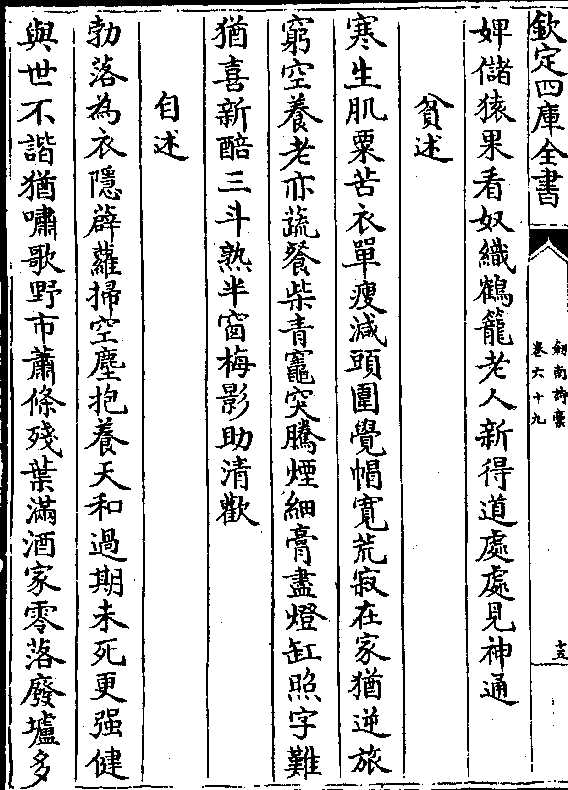 欽定四庫全書
劍南詩稾
卷六十九
十五
婢儲猿果看奴織鶴籠老人新得道處處見神通
貧述
寒生肌粟苦衣單瘦減頭圍覺帽寛荒寂在家猶逆旅
窮空養老亦蔬餐柴青竈突騰煙細膏盡燈缸照字難
猶喜新醅三斗熟半窗梅影助清歡
自述
勃落為衣隱薜蘿掃空塵抱養天和過期未死更强健
與世不諧猶嘯歌野市蕭條殘葉滿酒家零落廢壚多